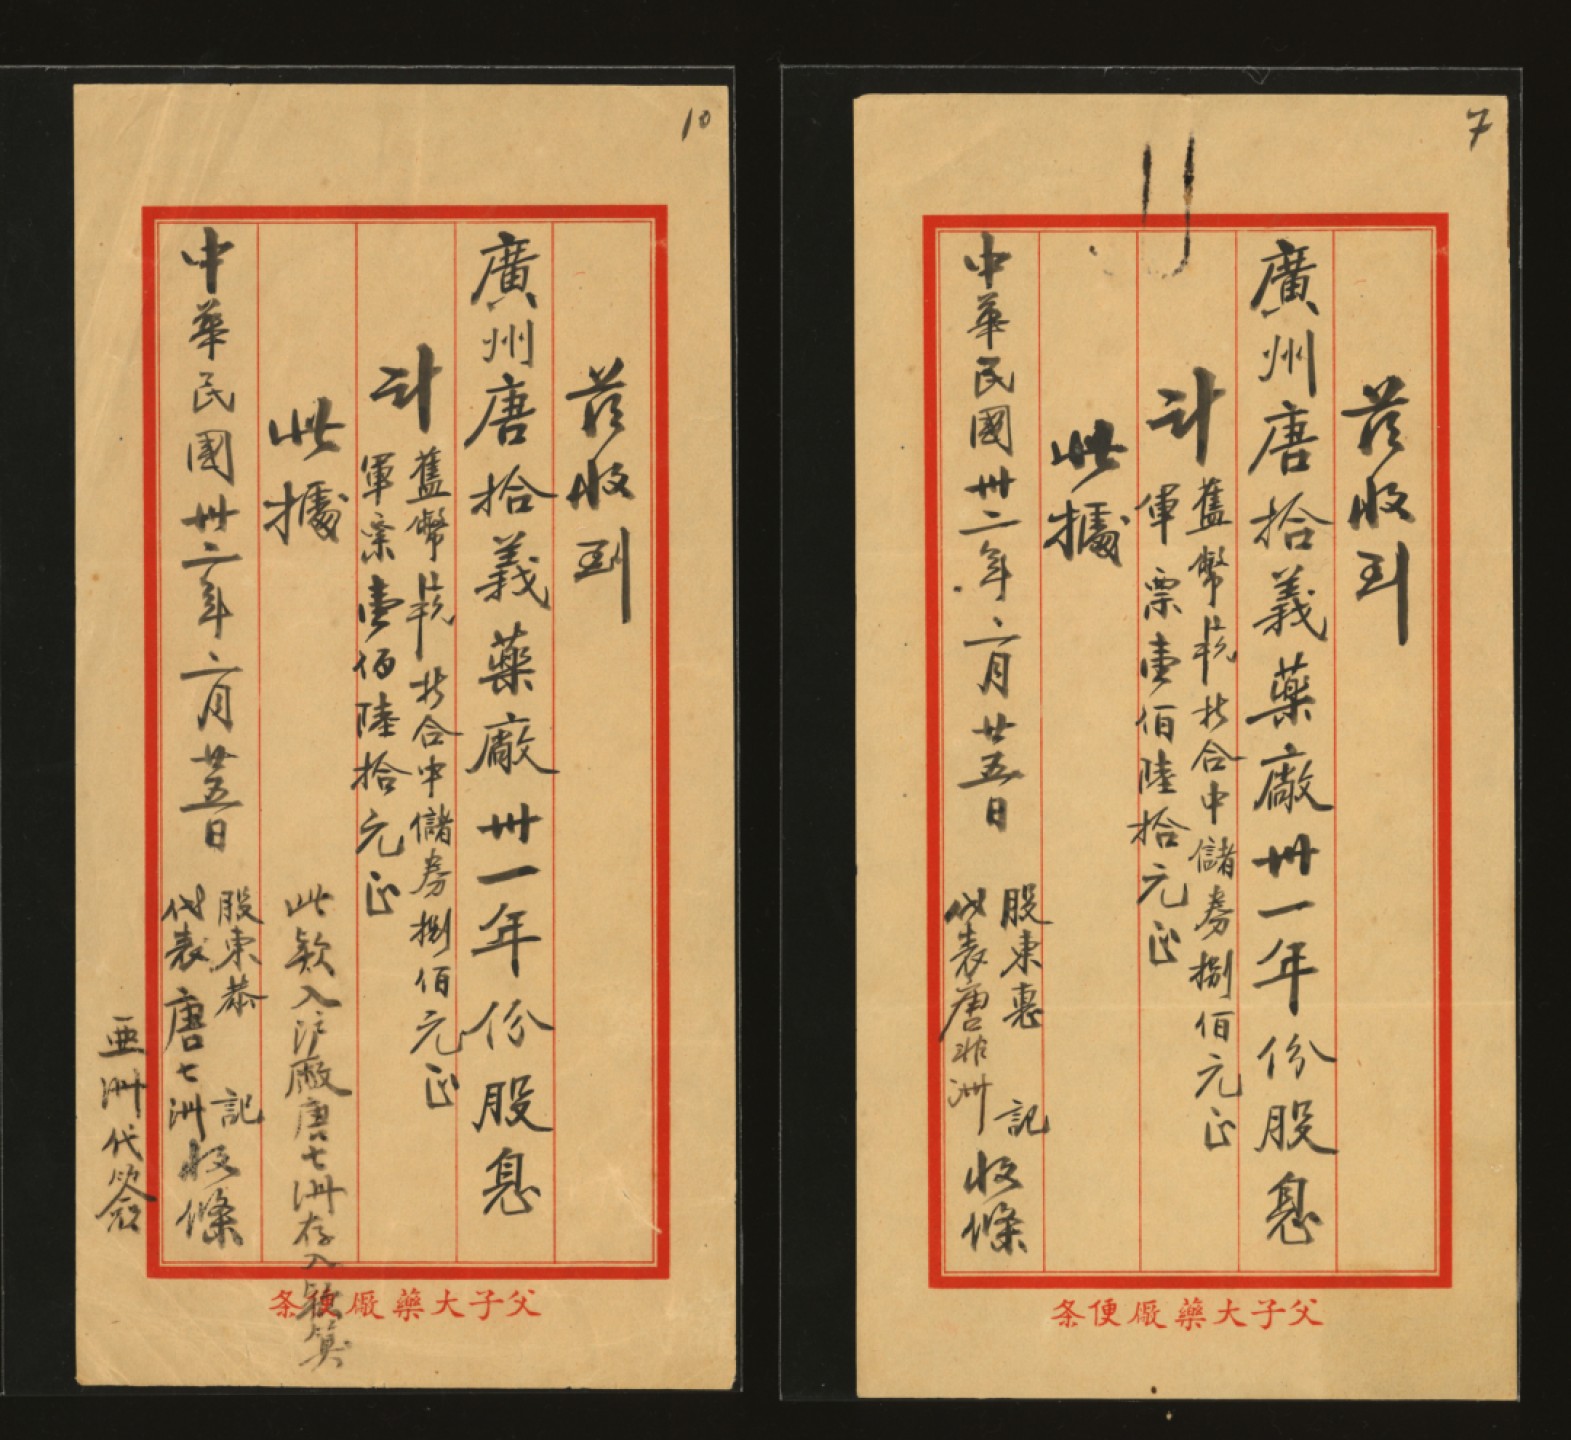 10
茲收到
廣州唐拾義藥廠卅一年份股息
計
舊幣折合中儲券捌佰元正
軍票壹佰陸拾元正
此據
此欵入沪廠唐七洲存入算
中華民國卅二年六月廿五日
股東恭記
代表唐七洲
收條
亜洲代簽
父子大藥厰便条
7
茲收到
廣州唐拾義藥廠卅一年份股息
計
舊幣折合中儲券捌佰元正
軍票壹佰陸拾元正
此據
中華民國卅二年六月廿五日
股東惠記
代表唐非洲
收條
父子大藥厰便条